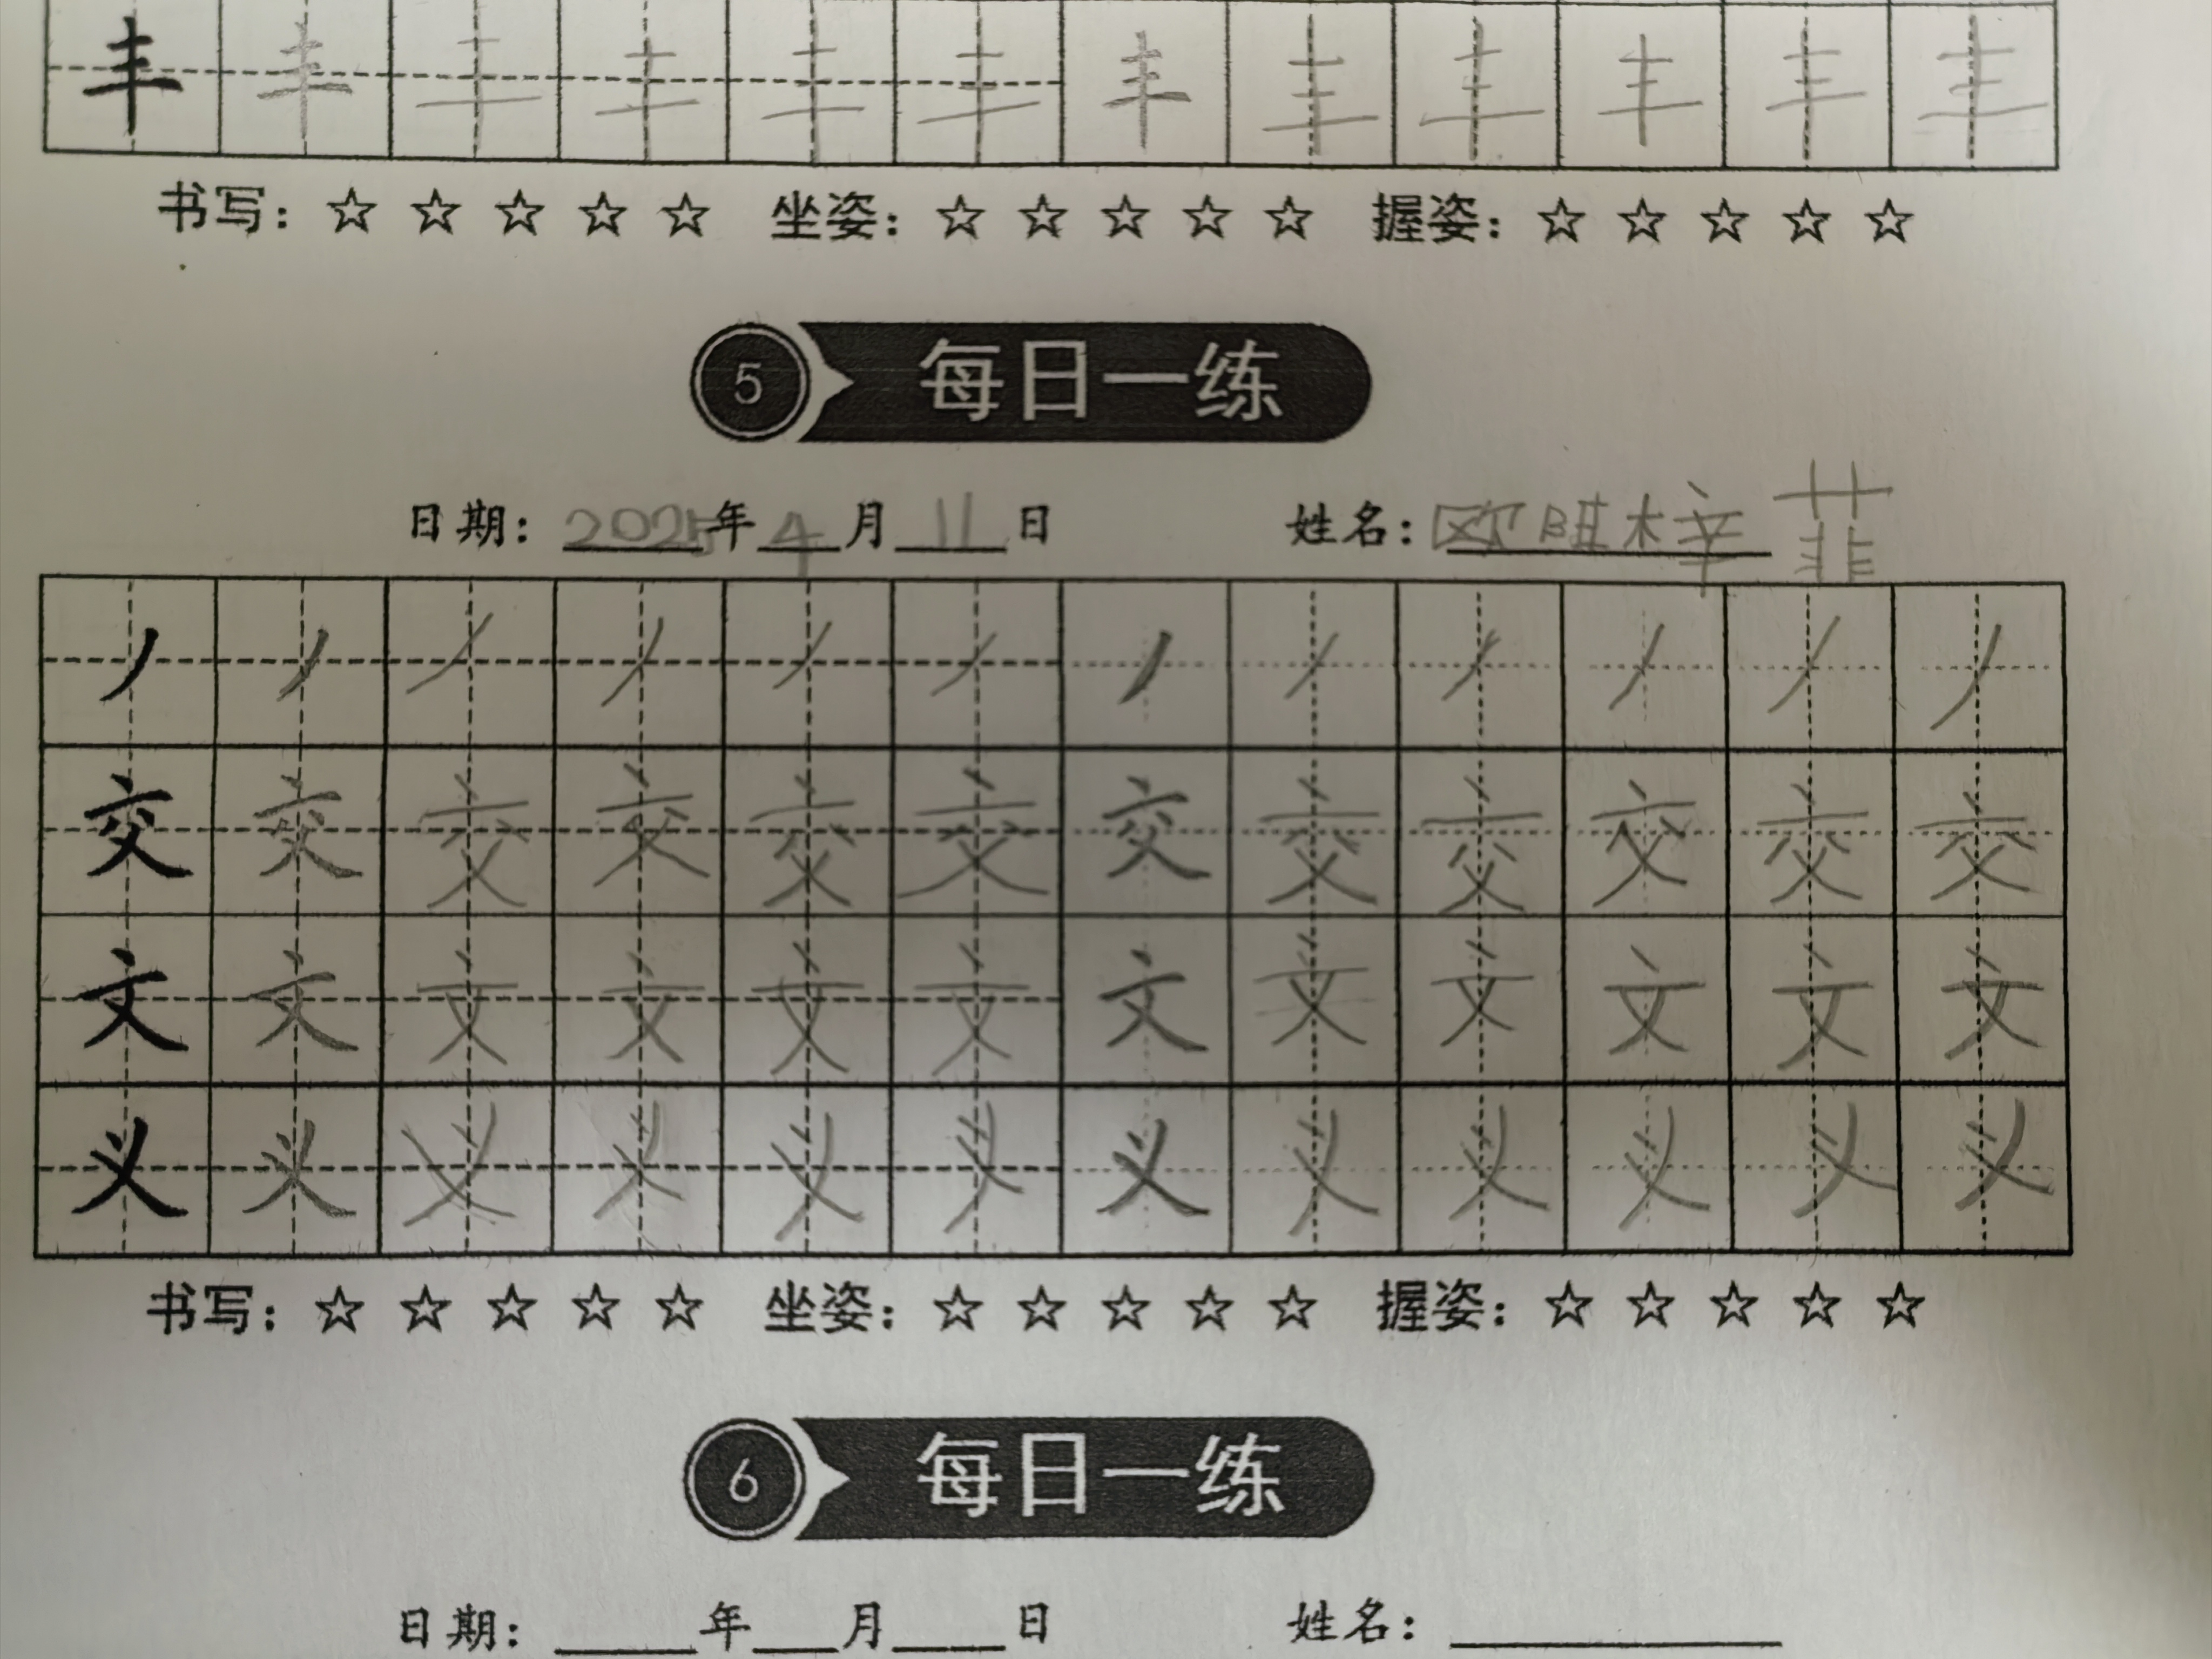 丰 丰 丰 丰 丰 丰 丰 丰 丰 丰 丰 丰
书写：☆ ☆ ☆ ☆ ☆ 坐姿：☆ ☆ ☆ ☆ ☆ 握姿：☆ ☆ ☆ ☆ ☆
5 每日一练
日期：2025年4月11日 姓名：欧阳梓菲
丿 丿 丿 丿 丿 丿 丿 丿 丿 丿 丿 丿
交 交 交 交 交 交 交 交 交 交 交 交
文 文 文 文 文 文 文 文 文 文 文 文
义 义 义 义 义 义 义 义 义 义 义 义
书写：☆ ☆ ☆ ☆ ☆ 坐姿：☆ ☆ ☆ ☆ ☆ 握姿：☆ ☆ ☆ ☆ ☆
6 每日一练
日期：____年____月____日 姓名：________